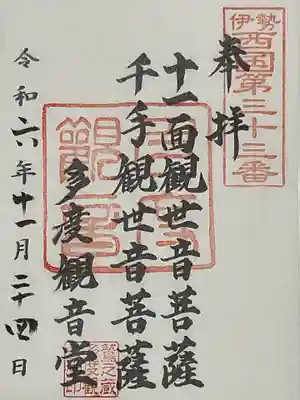 伊勢
西国第三十三番
奉拝
十一面觀世音菩薩
千手観世音菩薩
多度觀音堂
令和六年十一月二十四日